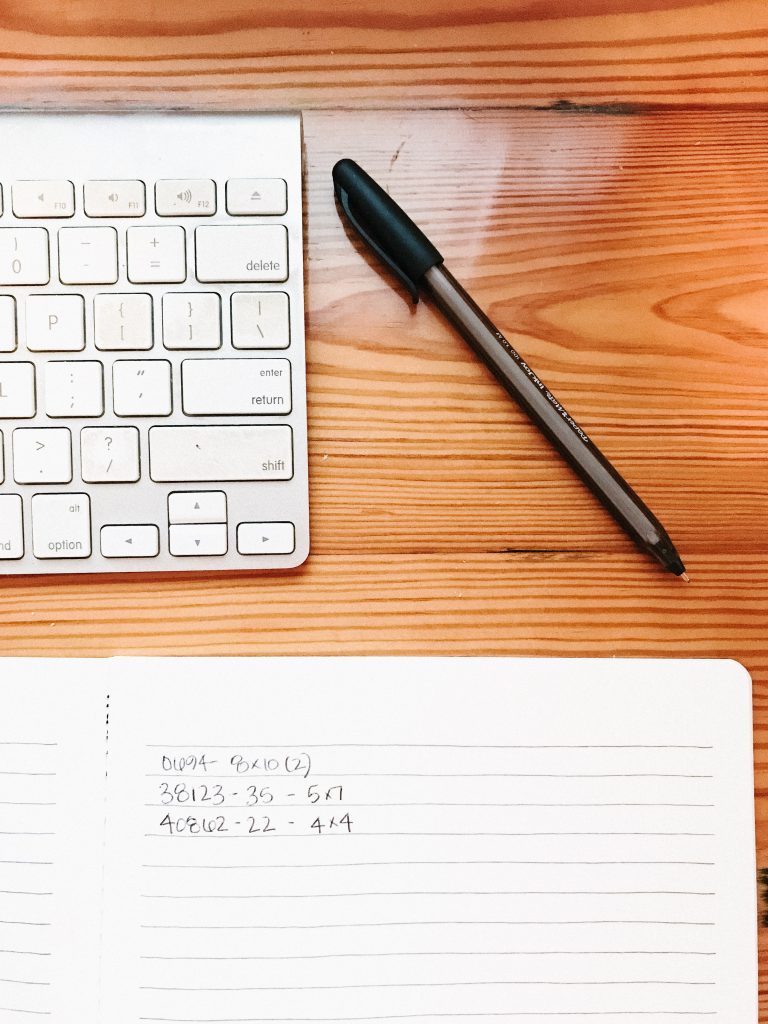 F10 F11 F12
)
0 - - + =
delete
P { [ } ] | \
L : ; " '
enter
return
> . ? /
shift
nd
alt
option
PaperMate InkJoy 100 1.0 M
0694- 8x10 (2)
38123 - 35 - 5x7
40862 - 22 - 4x4